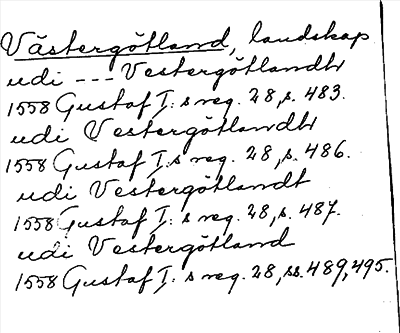 Västergötland, landskap
udi --- Vestergötlandh
1558 Gustaf I:s reg. 28, s. 483.
udi Vestergötlandh
1558 Gustaf I:s reg. 28, s. 486.
udi Vestergötlandt
1558 Gustaf I:s reg. 28, s. 487.
udi Vestergötland
1558 Gustaf I:s reg. 28, ss. 489, 495.